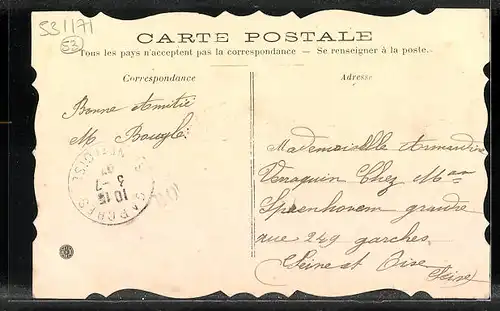 531171
53
CARTE POSTALE
Tous les pays n'acceptent pas la correspondance — Se renseigner à la poste.
Correspondance
Adresse
Bonne Amitié
M. Bougle
Mademoiselle Armandine
Venaquin Chez Mme
Speenhovem grande
rue 249 garches
Seine et Oise
GARCHES
10 15
3-7